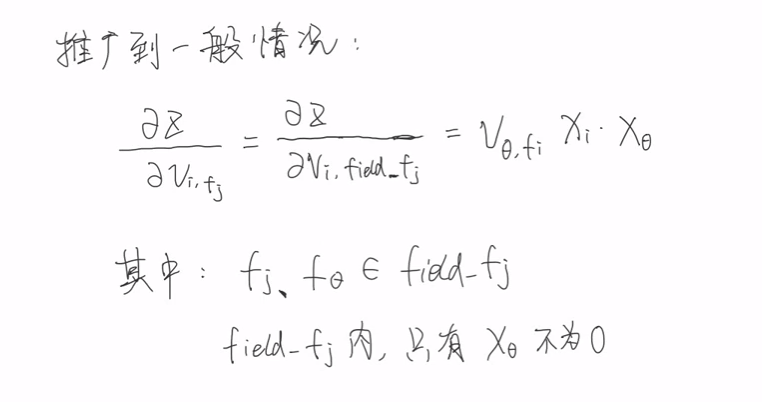 推广到一般情况:
∂z/∂v_{i,f_j} = ∂z/∂v_{i,field_f_j} = v_{θ,f_i} x_i · x_θ
其中: f_j、f_θ ∈ field_f_j
field_f_j 内, 只有 x_θ 不为0